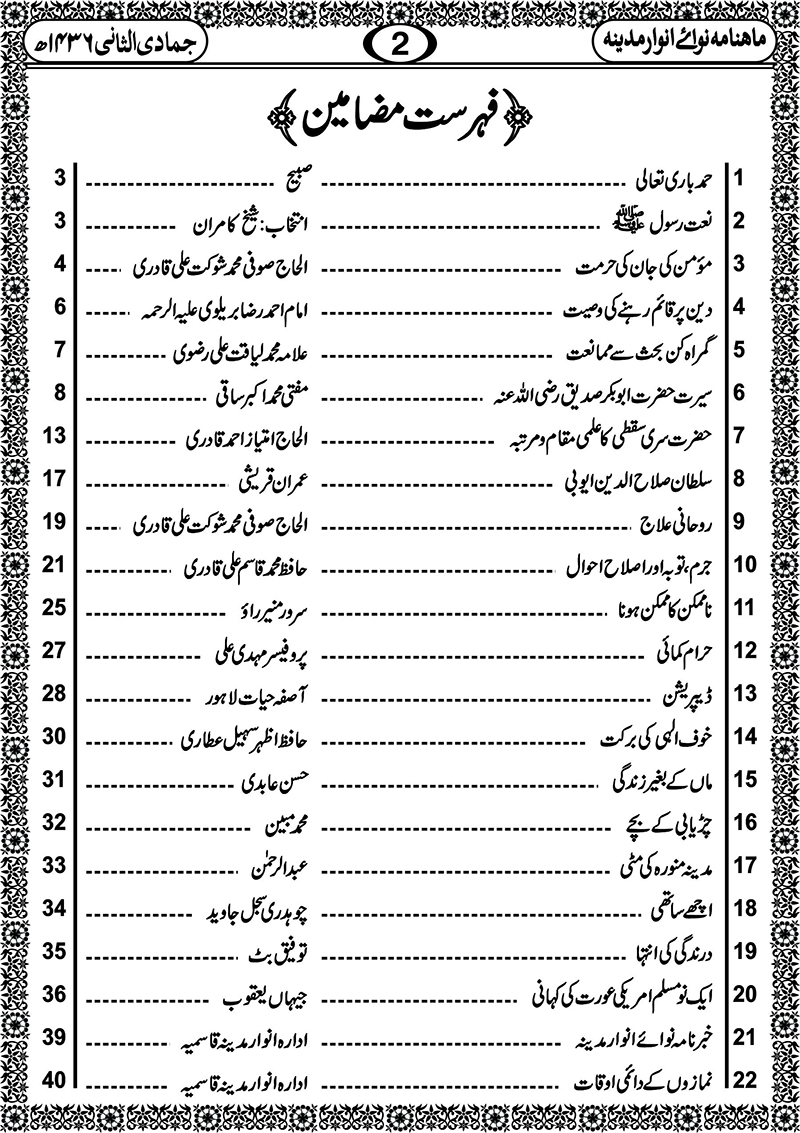 ماہنامہ نوائے انوار مدینہ 2 جمادی الثانی ۱۴۳۶ھ
فہرست مضامین
1 حمد باری تعالی ---------- صبیح ---------- 3
2 نعت رسول ﷺ ---------- انتخاب: شیخ کامران ---------- 3
3 مؤمن کی جان کی حرمت ---------- الحاج صوفی محمد شوکت علی قادری ---------- 4
4 دین پر قائم رہنے کی وصیت ---------- امام احمد رضا بریلوی علیہ الرحمہ ---------- 6
5 گمراہ کن بحث سے ممانعت ---------- علامہ محمد لیاقت علی رضوی ---------- 7
6 سیرت حضرت ابوبکر صدیق رضی اللہ عنہ ---------- مفتی محمد اکبر ساقی ---------- 8
7 حضرت سری سقطی کا علمی مقام و مرتبہ ---------- الحاج امتیاز احمد قادری ---------- 13
8 سلطان صلاح الدین ایوبی ---------- عمران قریشی ---------- 17
9 روحانی علاج ---------- الحاج صوفی محمد شوکت علی قادری ---------- 19
10 جرم، توبہ اور اصلاح احوال ---------- حافظ محمد قاسم علی قادری ---------- 21
11 ناممکن کا ممکن ہونا ---------- سرور منیر راؤ ---------- 25
12 حرام کمائی ---------- پروفیسر مہدی علی ---------- 27
13 ڈیپریشن ---------- آصفہ حیات لاہور ---------- 28
14 خوف الہی کی برکت ---------- حافظ اظہر سہیل عطاری ---------- 30
15 ماں کے بغیر زندگی ---------- حسن عابدی ---------- 31
16 چڑیا بی کے بچے ---------- محمد مبین ---------- 32
17 مدینہ منورہ کی مٹی ---------- عبدالرحمٰن ---------- 33
18 اچھے ساتھی ---------- چوہدری سجل جاوید ---------- 34
19 درندگی کی انتہا ---------- توفیق بٹ ---------- 35
20 ایک نو مسلم امریکی عورت کی کہانی ---------- جیہاں یعقوب ---------- 36
21 خبرنامہ نوائے انوار مدینہ ---------- ادارہ انوار مدینہ قاسمیہ ---------- 39
22 نمازوں کے دائمی اوقات ---------- ادارہ انوار مدینہ قاسمیہ ---------- 40